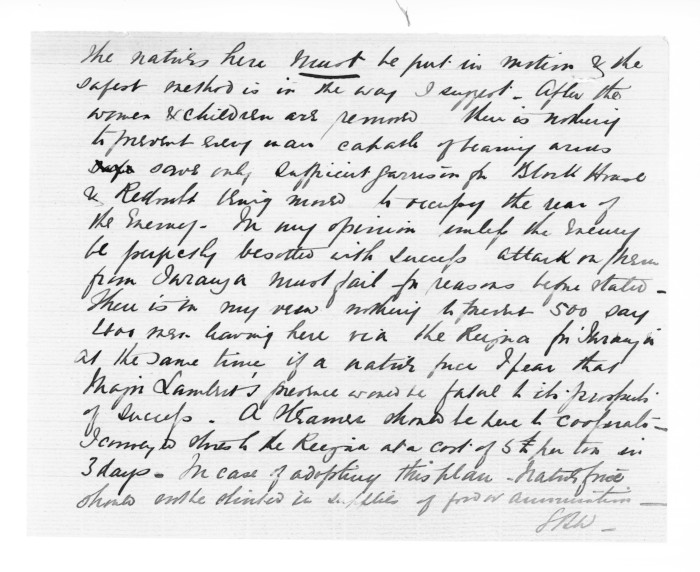 the natives here must be put in motion & the
safest method is in the way I suggest. After the
women & children are removed there is nothing
to prevent every man capable of bearing arms
save only sufficient garrison for Block House
& Redoubt being moved to occupy the rear of
the Enemy. In my opinion unless the Enemy
be perfectly besotted with success attack on them
from Turanga must fail for reasons before stated.
There is in my view nothing to prevent 500 say
400 men leaving here via the Reinga for Turanga
at the same time if a native force I fear that
Major Lambert's presence would be fatal to its prospects
of success. A Steamer should be here to cooperate.
I conveyed stores to the Reinga at a cost of 5£ per ton in
3 days. In case of adopting this plan - Native force
should not be stinted in supplies of food or ammunition -